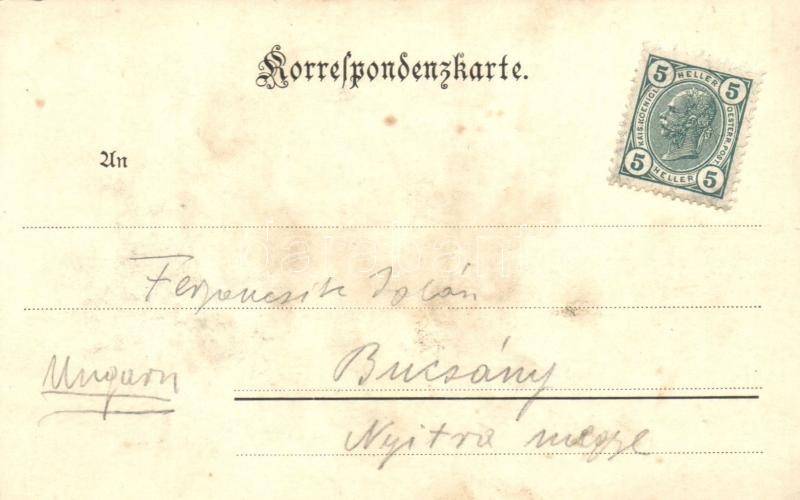 Korrespondenzkarte.
5 HELLER 5
KAIS. KOENIGL. OESTERR. POST.
5 HELLER 5
An
darabanth
Ungarn
Bucsány
Nyitra megye